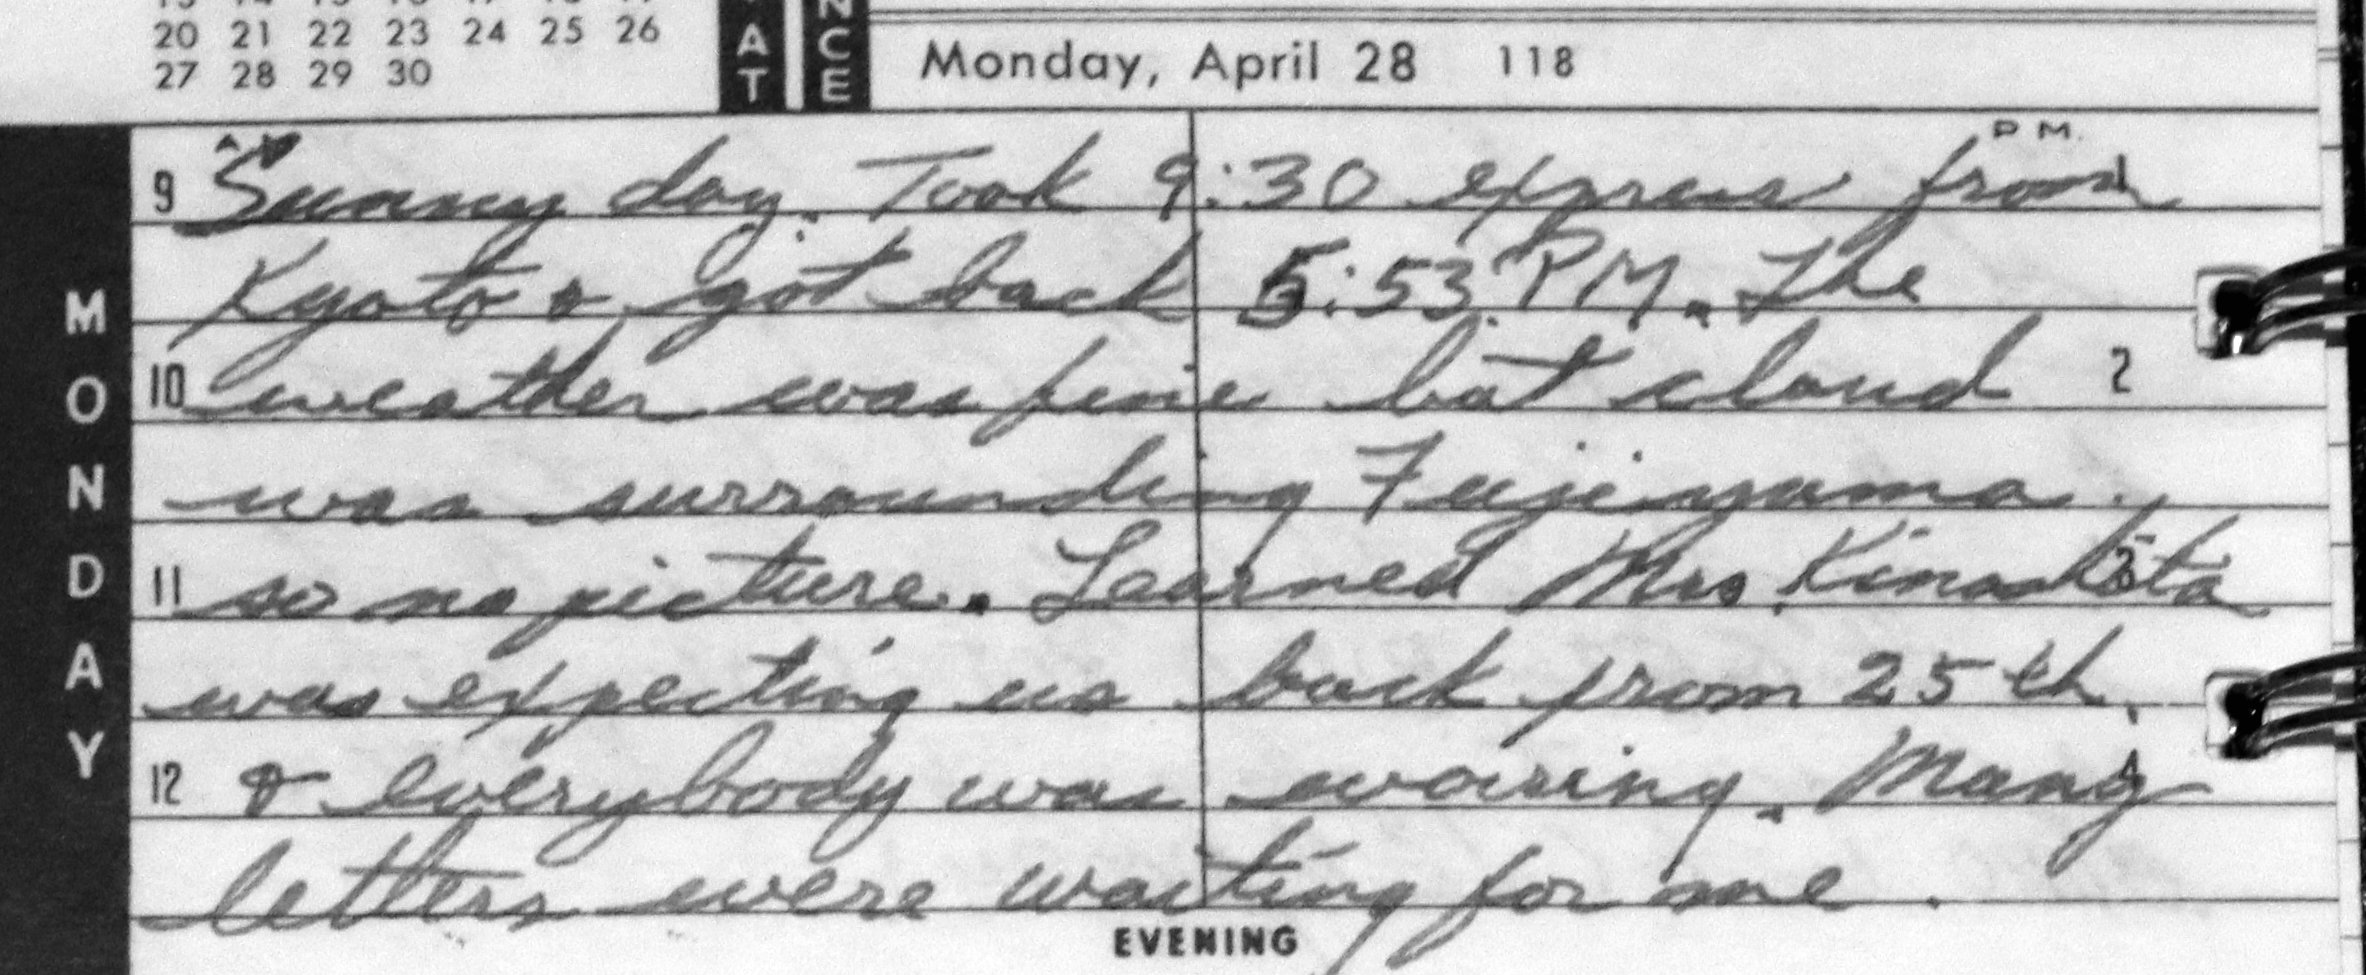 20 21 22 23 24 25 26
27 28 29 30
AT
NCE
Monday, April 28 118
MONDAY
PM.
9 Sunny day. Took 9:30 express from 1
Kyoto & got back 5:53 PM. The
10 weather was fine but cloud 2
was surrounding Fujiyama.
11 so no picture. Learned Mrs. Kinoshita 3
was expecting us back from 25th,
12 & everybody was worring. Many 4
letters were waiting for me.
EVENING